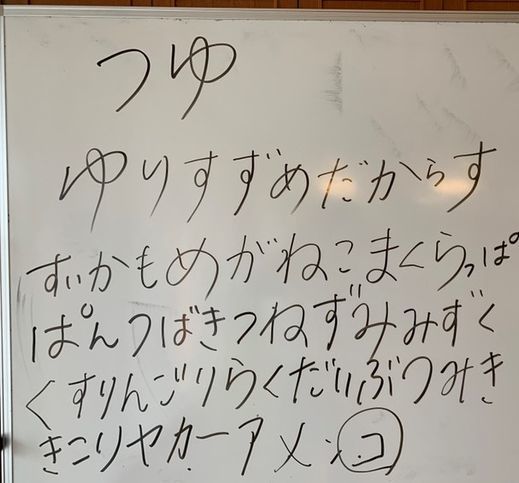 つゆ
ゆりすずめだからす
すいかもめがねこまくらっぱ
ぱんつばきつねずみみずく
くすりんごりらくだいぶつみき
きこりヤカーアメンコ